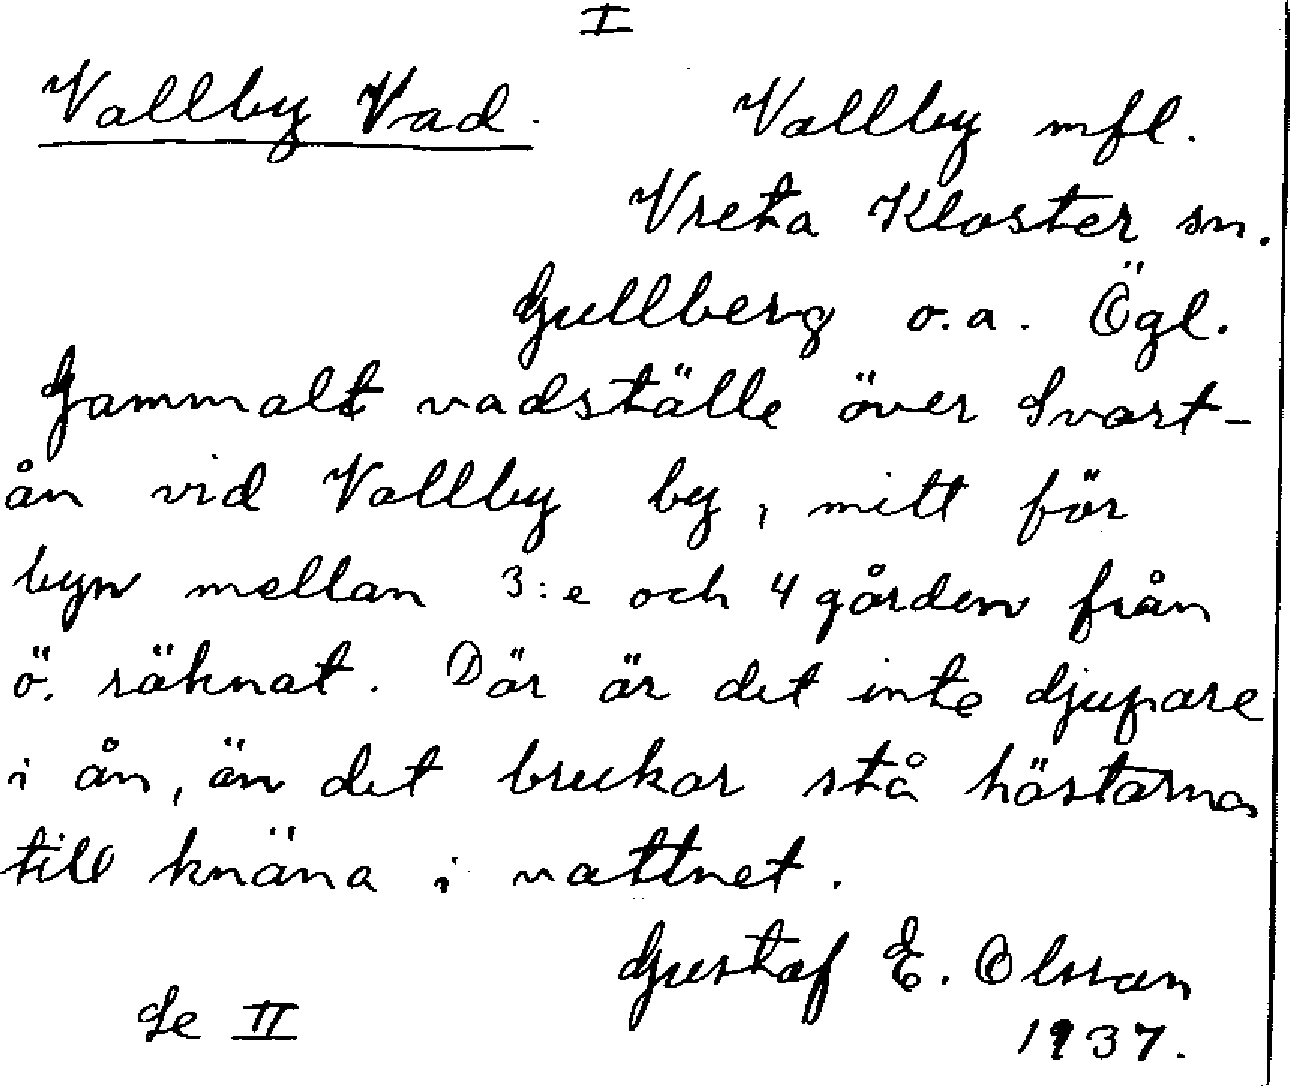 I
Vallby Vad.
Vallby mfl.
Vreta Kloster sn.
Gullberg o.a. Ögl.
Gammalt vadställe över Svart-
ån vid Vallby by, mitt för
byn mellan 3:e och 4 gården från
ö. räknat. Där är det inte djupare
i ån, än det bruckar stå hästarna
till knäna i vattnet.
Gustaf E. Olsson
1937.
Se II